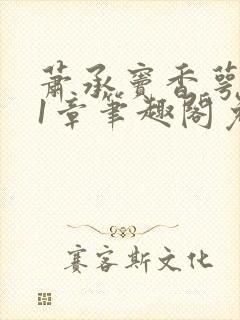 萧承窦香萼
1章笔趣阁免
赛客斯文化